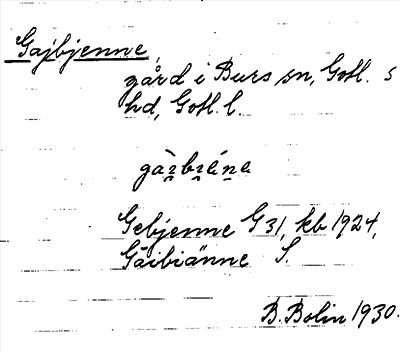 Gajbjenne,
gård i Burs sn, Gotl. s
hd, Gotl. l.
Gebjenne G 31, kb 1924,
Gäibiänne S.
B. Bolin 1930.